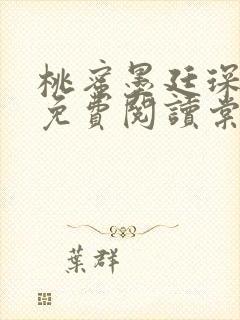 桃蜜墨廷琛
免費閱讀棠
葉群